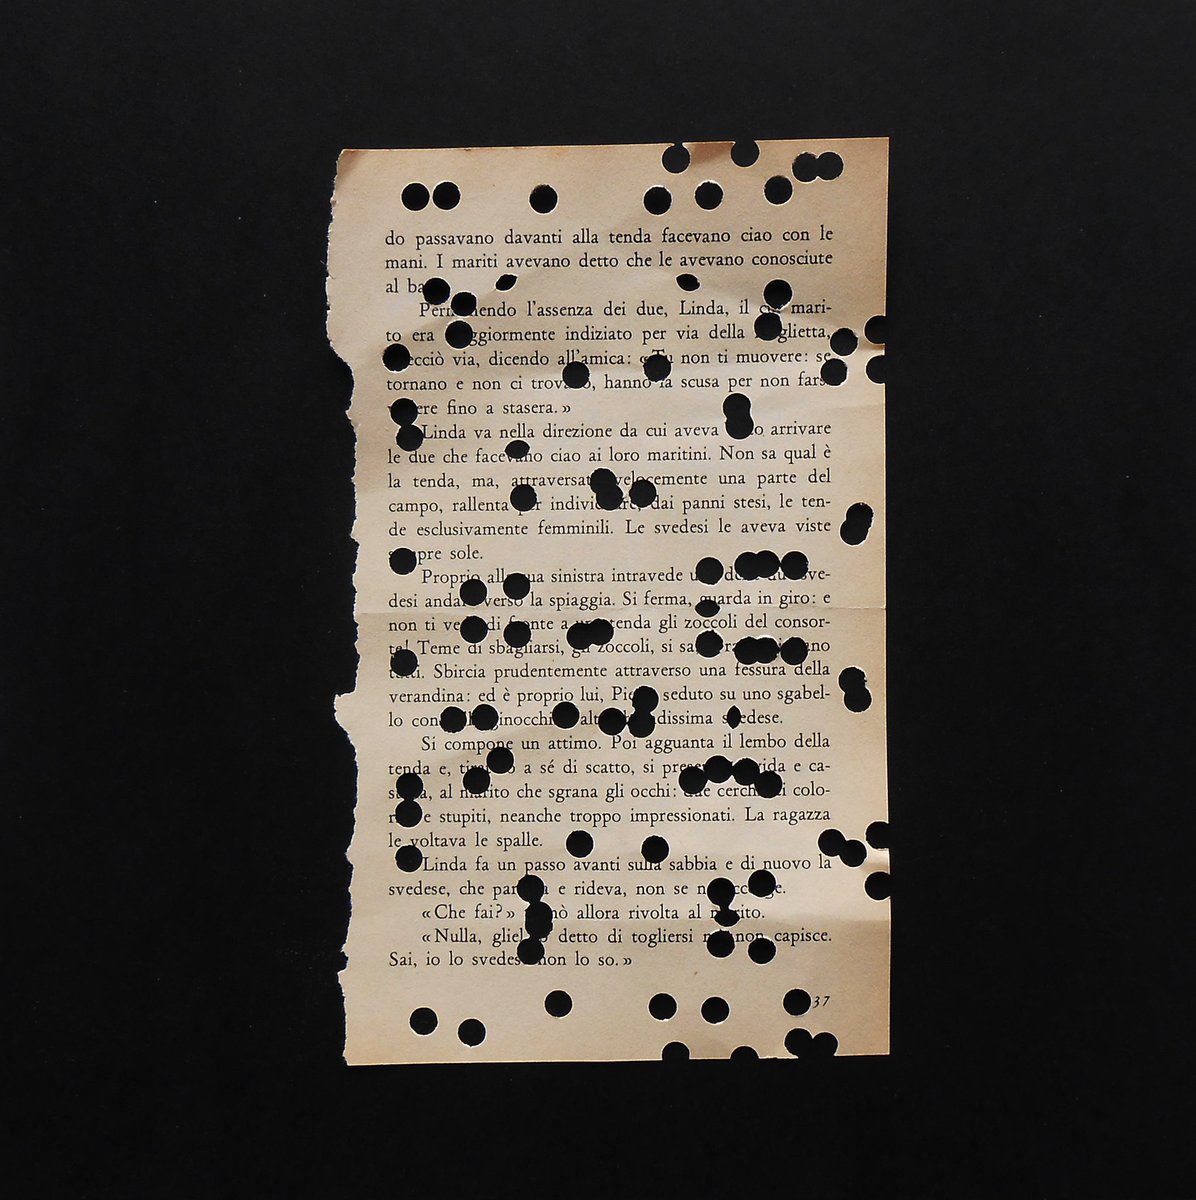 do passavano davanti alla tenda facevano ciao con le
mani. I mariti avevano detto che le avevano conosciute
al
l'assenza dei due, Linda, il mari-
to era indiziato per via della
via, dicendo all'amica: « Tu non ti muovere: se
tornano e non ci hanno la scusa per non
fino a stasera. »
Linda va nella direzione da cui aveva arrivare
le due che facevano ciao ai loro maritini. Non sa qual è
la tenda, ma, attraversata velocemente una parte del
campo, rallenta per dai panni stesi, le ten-
de esclusivamente femminili. Le svedesi le aveva viste
sempre sole.
Proprio alla sua sinistra intravede sve-
desi verso la spiaggia. Si ferma, guarda in giro: e
non ti di fronte a una tenda gli zoccoli del consor-
te! Teme di sbagliarsi, gli zoccoli, si
Sbircia prudentemente attraverso una fessura della
verandina: ed è proprio lui, seduto su uno sgabel-
lo svedese.
Si compone un attimo. Poi agguanta il lembo della
tenda e, a sé di scatto, si e ca-
al marito che sgrana gli occhi: due colo-
e stupiti, neanche troppo impressionati. La ragazza
le voltava le spalle.
Linda fa un passo avanti sulla sabbia e di nuovo la
svedese, che e rideva, non se
« Che fai? » allora rivolta al marito.
« Nulla, detto di togliersi non capisce.
Sai, io lo svedese non lo so. »
37